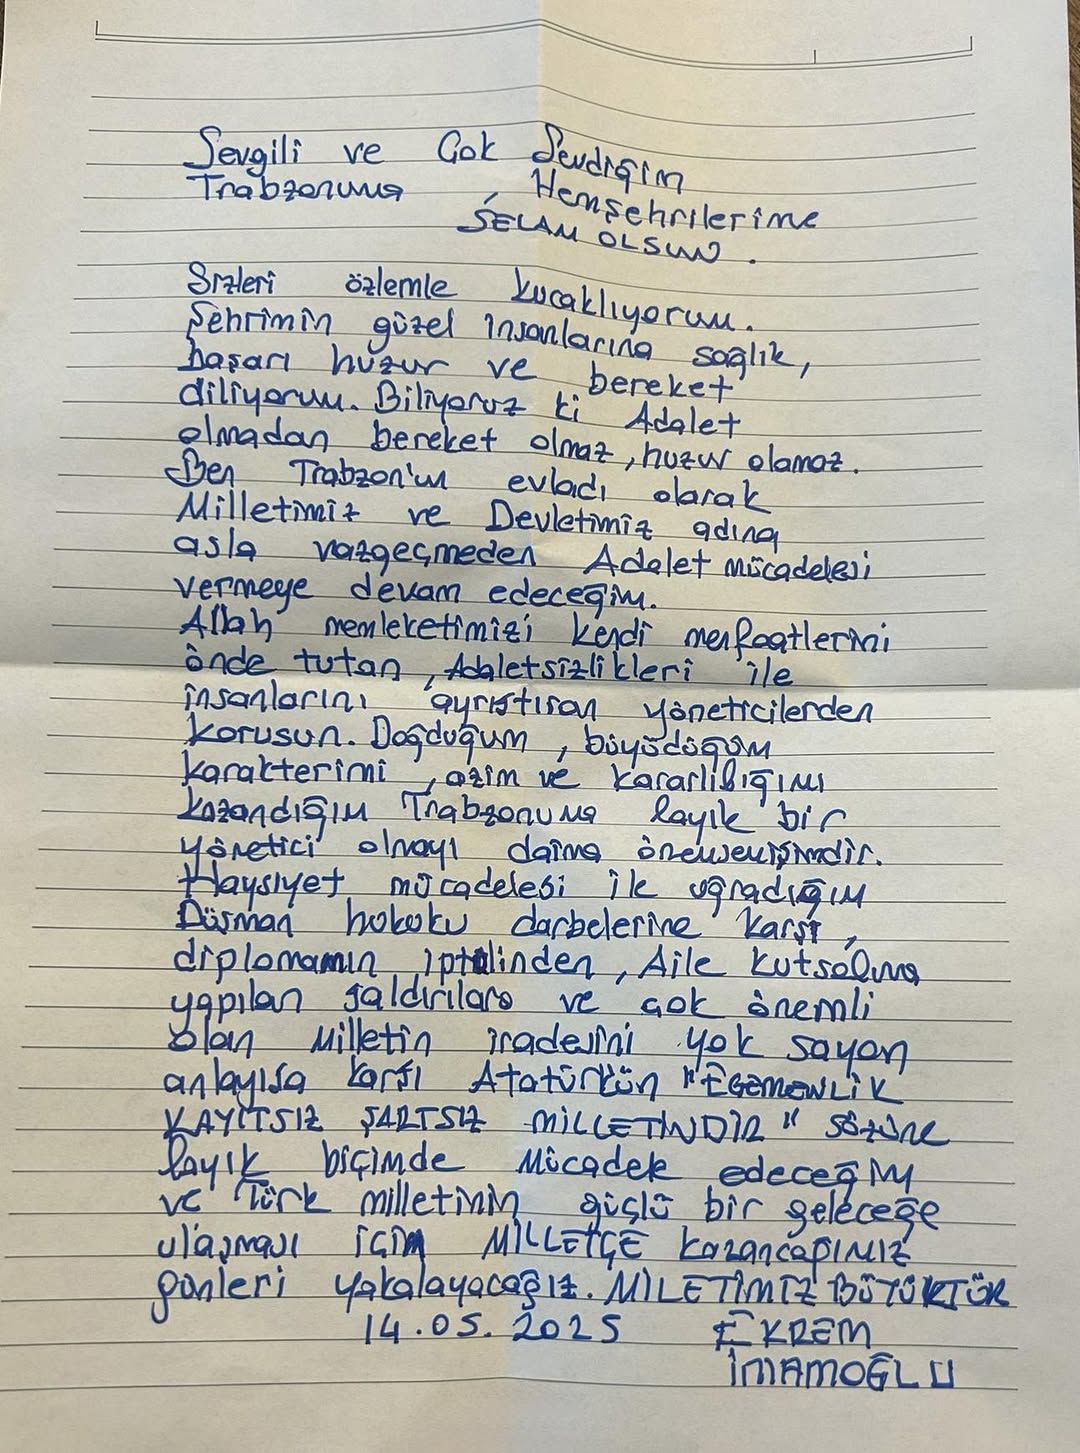 Sevgili ve Çok Sevdiğim
Trabzonuma, Hemşehrilerime
SELAM OLSUN.
Sizleri özlemle kucaklıyorum.
Şehrimin güzel insanlarına sağlık,
başarı huzur ve bereket
diliyorum. Biliyoruz ki Adalet
olmadan bereket olmaz, huzur olamaz.
Ben Trabzon'un evladı olarak
Milletimiz ve Devletimiz adına
asla vazgeçmeden Adalet mücadelesi
vermeye devam edeceğim.
Allah memleketimizi kendi menfaatlerini
önde tutan, Adaletsizlikleri ile
insanlarını ayrıştıran yöneticilerden
korusun. Doğduğum, büyüdüğüm
karakterimi, azim ve kararlılığımı
kazandığım Trabzonuma layık bir
yönetici olmayı daima önemsemişimdir.
Haysiyet mücadelesi ile uğradığım
Düşman hukuku darbelerine karşı,
diplomamın iptalinden, Aile kutsalıma
yapılan saldırılara ve çok önemli
olan Milletin iradesini yok sayan
anlayışa karşı Atatürkün "EGEMENLİK
KAYITSIZ ŞARTSIZ MİLLETİNDİR" sözüne
layık biçimde Mücadele edeceğim
ve Türk milletinin güçlü bir geleceğe
ulaşması için MİLLETÇE kazanacağımız
günleri yakalayacağız. MİLETİMİZ BÜYÜKTÜR
14.05.2025 EKREM
İMAMOĞLU